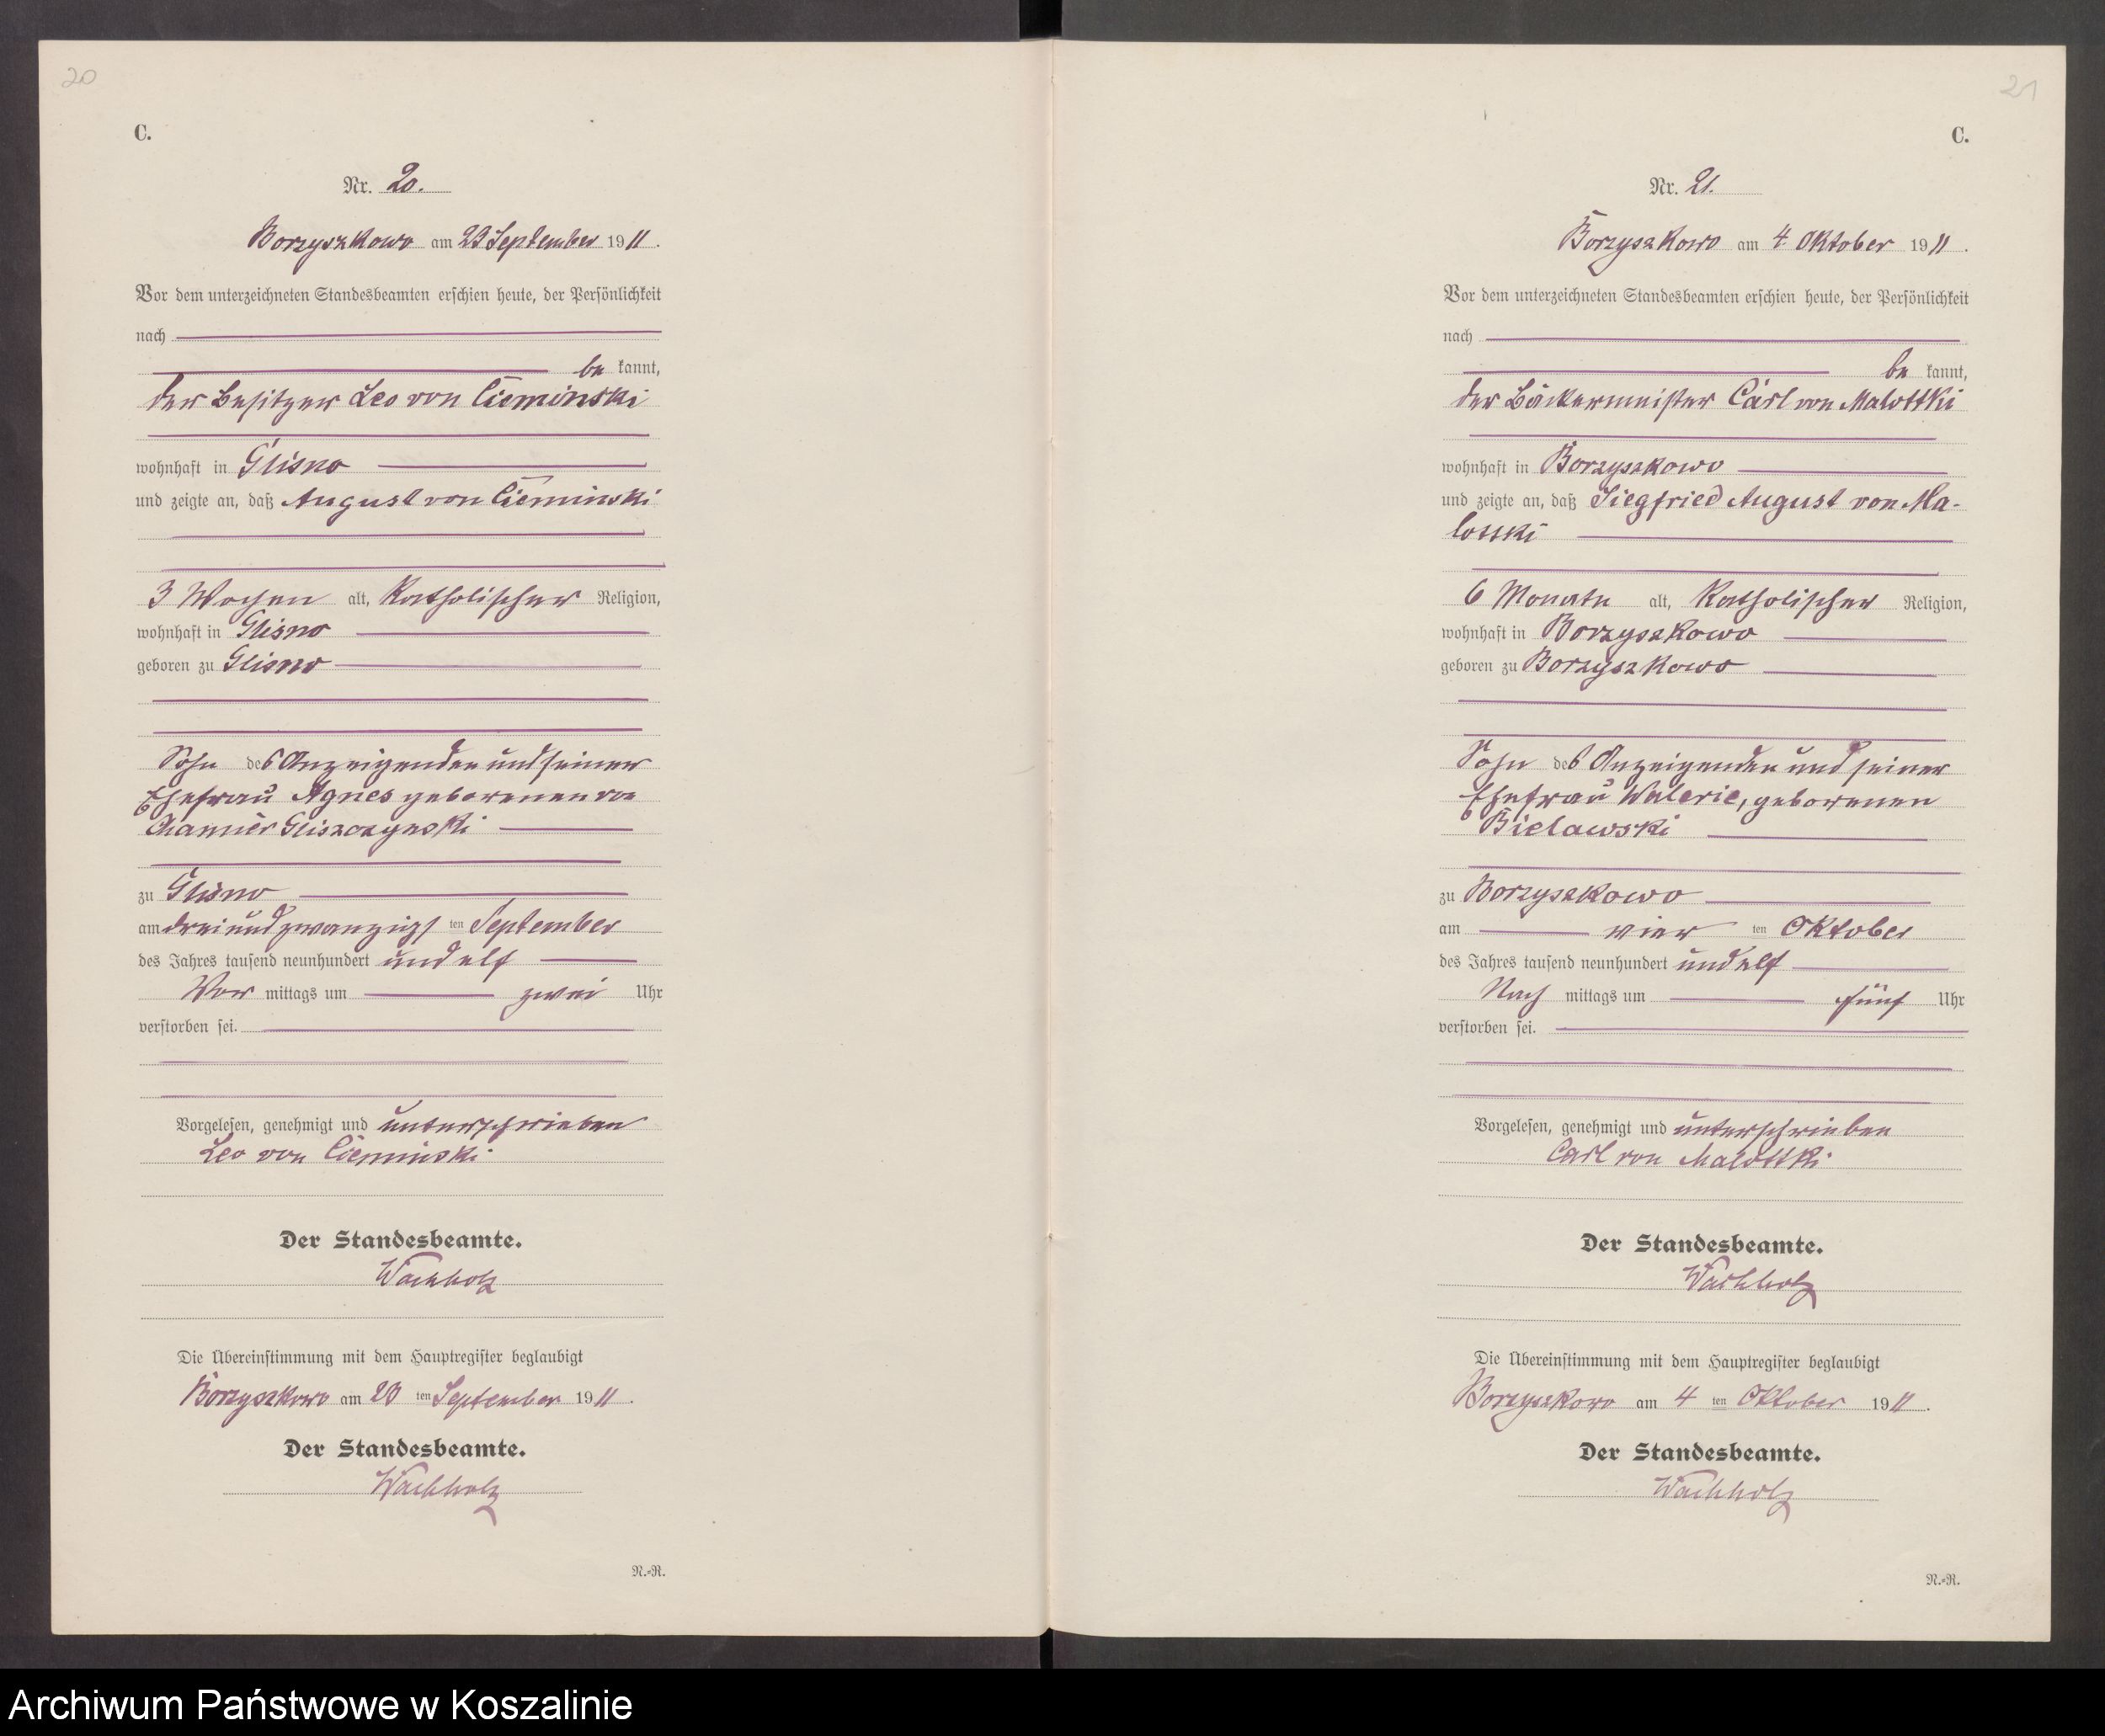 20
C.
Nr. 20.
Borzyszkowo am 23 September 1911.
Vor dem unterzeichneten Standesbeamten erschien heute, der Persönlichkeit
nach
be kannt,
der Besitzer Leo von Cieminski
wohnhaft in Glisno
und zeigte an, daß August von Cieminski
3 Wochen alt, Katholischer Religion,
wohnhaft in Glisno
geboren zu Glisno
Sohn des Anzeigenden und seiner
Ehefrau Agnes geborenen von
Chamier Gliszczynski
zu Glisno
am dreiundzwanzigsten September
des Jahres tausend neunhundert und elf
Vor mittags um zwei Uhr
verstorben sei.
Vorgelesen, genehmigt und unterschrieben
Leo von Cieminski
Der Standesbeamte.
Wachholz
Die Übereinstimmung mit dem Hauptregister beglaubigt
Borzyszkowo am ten September 1911.
Der Standesbeamte.
Wachholz
N.-R.
21
C.
Nr. 21.
Borzyszkowo am 4 Oktober 1911.
Vor dem unterzeichneten Standesbeamten erschien heute, der Persönlichkeit
nach
be kannt,
der Bäckermeister Carl von Malottki
wohnhaft in Borzyszkowo
und zeigte an, daß Siegfried August von Ma-
lottki
6 Monate alt, Katholischer Religion,
wohnhaft in Borzyszkowo
geboren zu Borzyszkowo
Sohn des Anzeigenden und seiner
Ehefrau Valerie, geborenen
Bielawski
zu Borzyszkowo
am vier ten Oktober
des Jahres tausend neunhundert und elf
Nach mittags um fünf Uhr
verstorben sei.
Vorgelesen, genehmigt und unterschrieben
Carl von Malottki
Der Standesbeamte.
Wachholz
Die Übereinstimmung mit dem Hauptregister beglaubigt
Borzyszkowo am 4 ten Oktober 1911.
Der Standesbeamte.
Wachholz
N.-R.
Archiwum Państwowe w Koszalinie